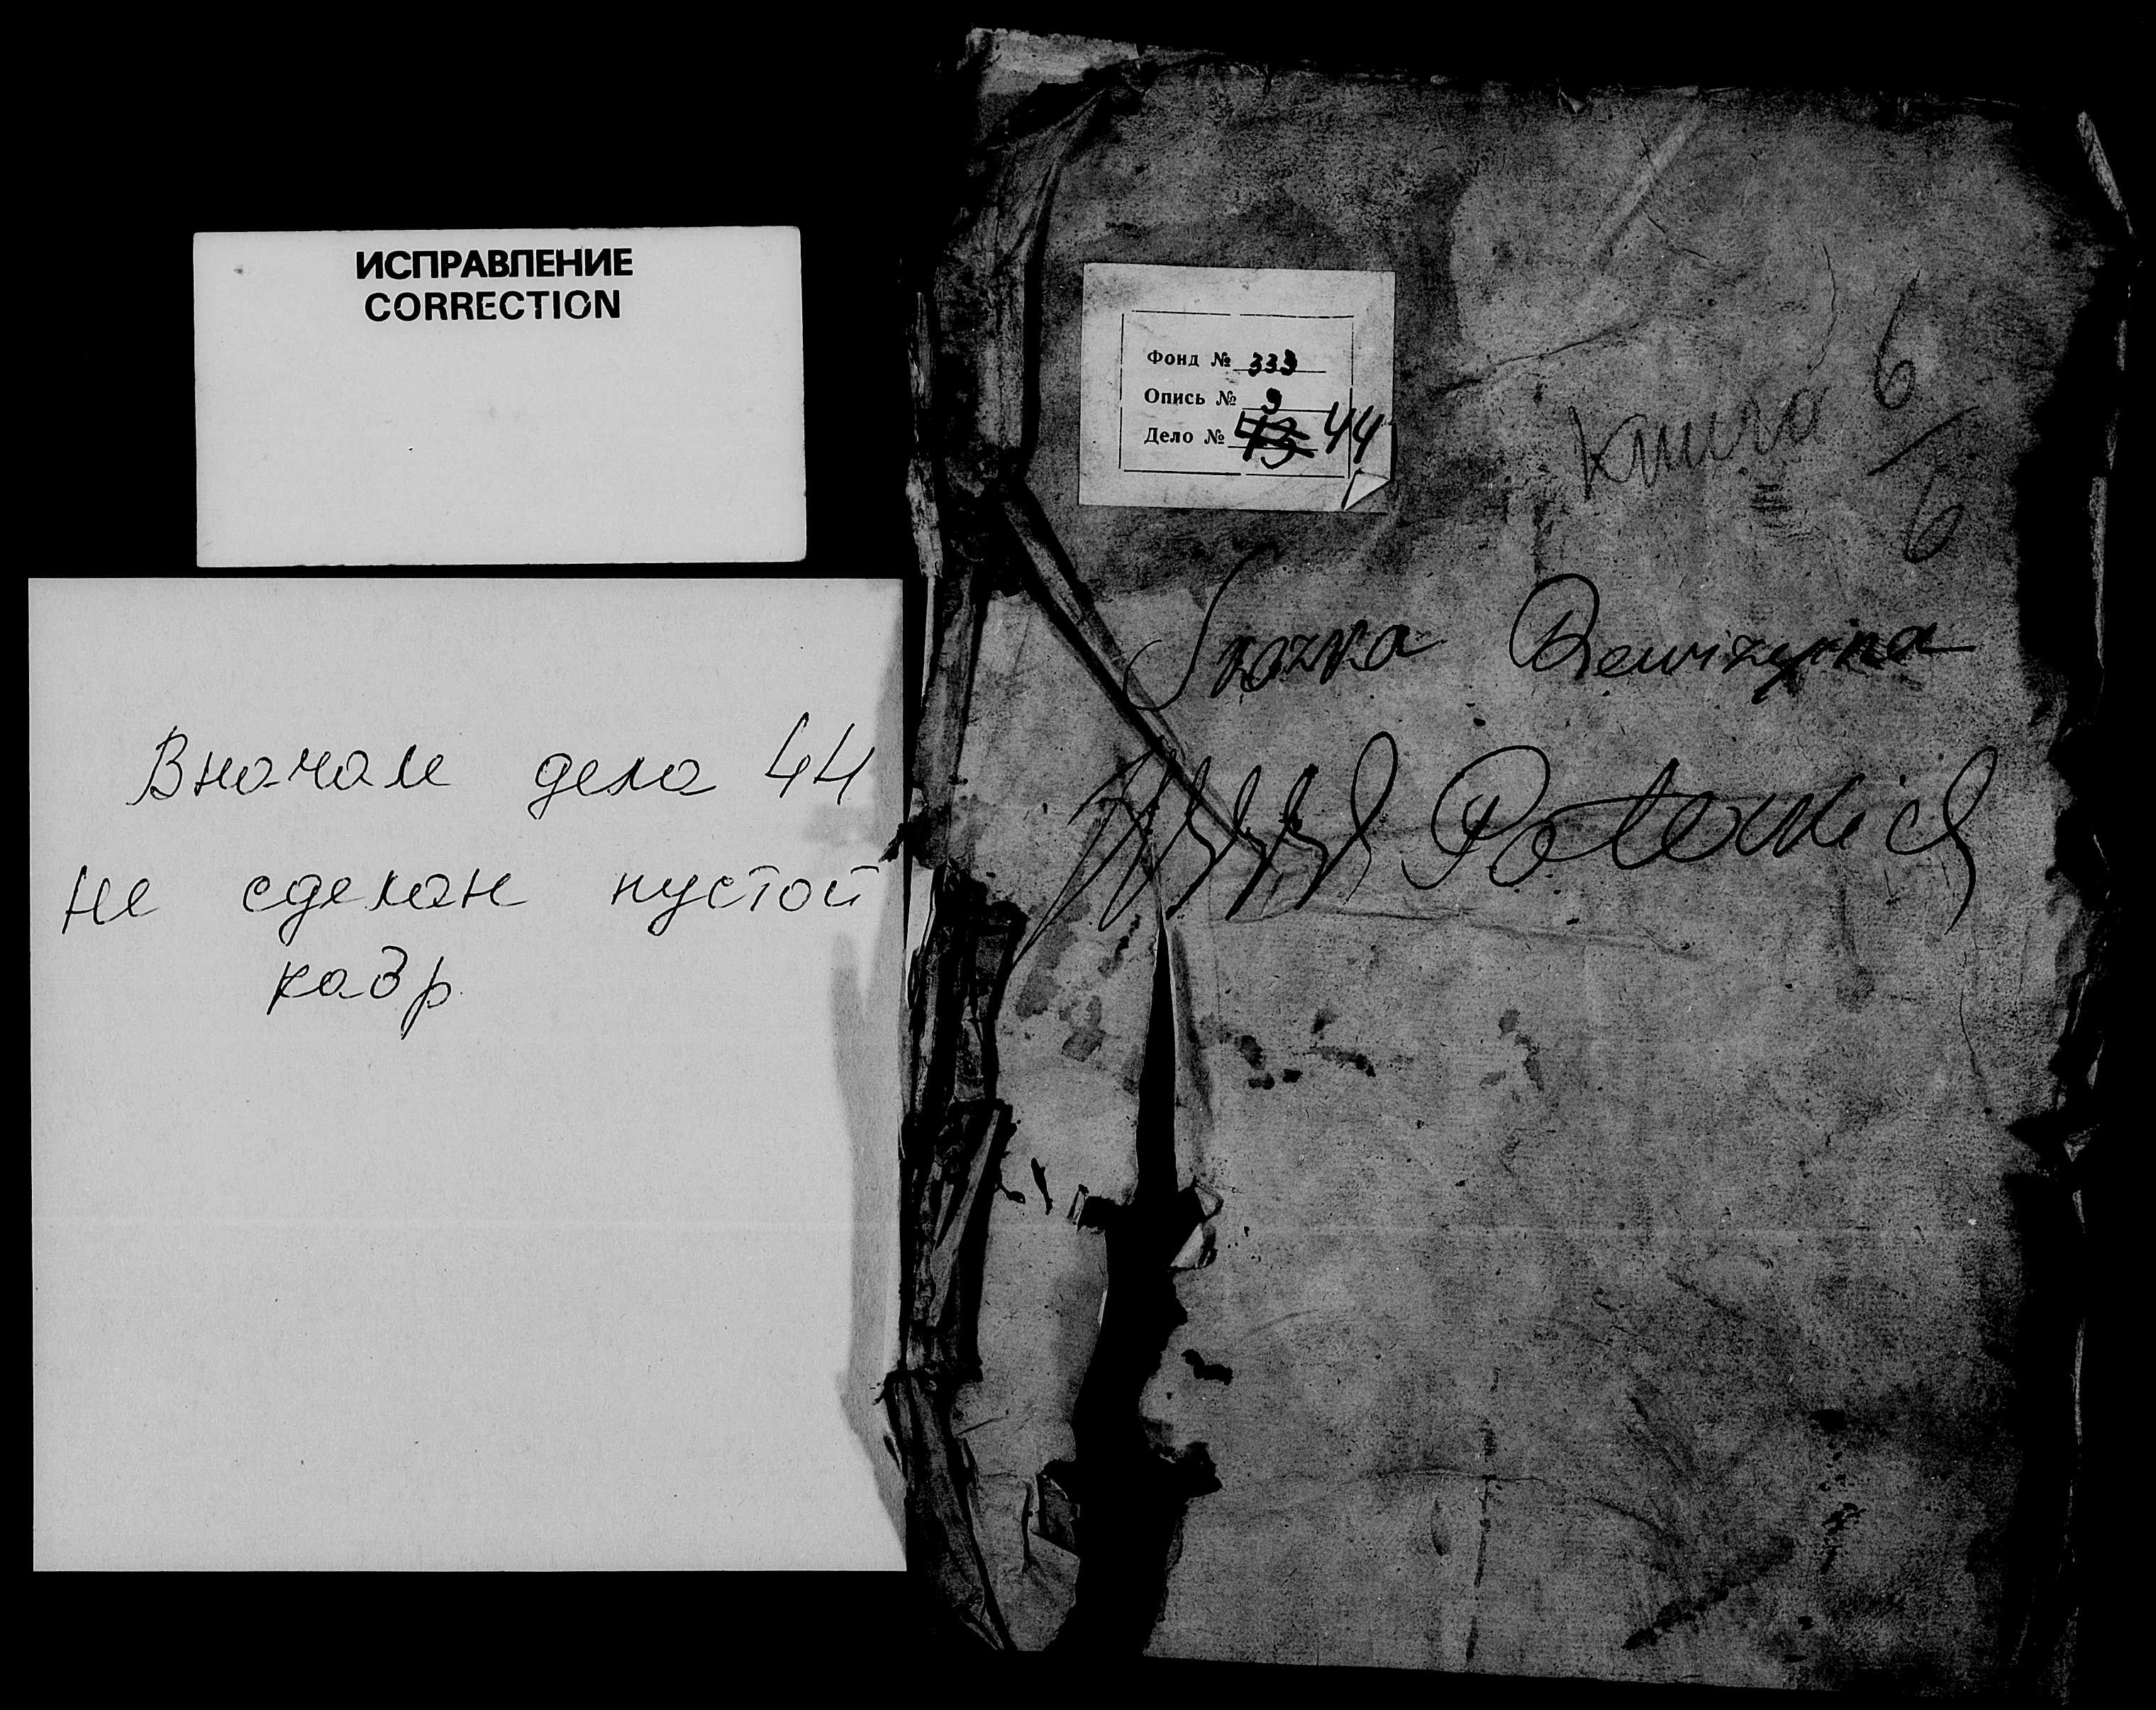 ИСПРАВЛЕНИЕ
CORRECTION
Вначале дела 44
не сделан пустой
кадр
Фонд № 333
Опись № 9
Дело № 44
книга 6
6
Skazka Rewizyina